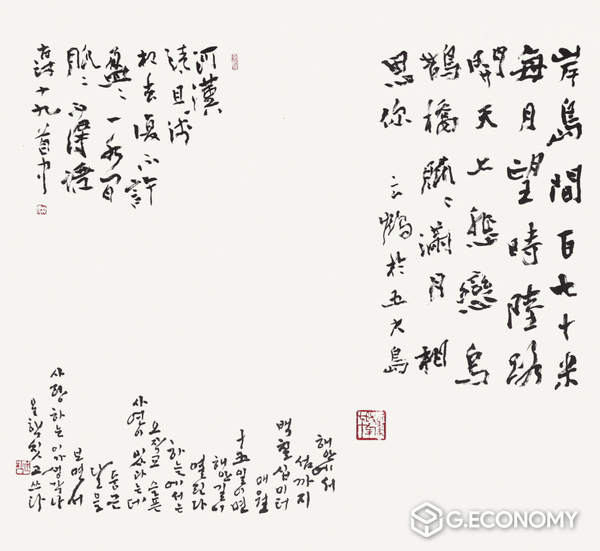 岸島間百七十米
每月望時陸路
開天上悲戀烏
鵲橋脈〻滿月相
思你
玄鶴於五六島
河漢
清且浅
相去復幾許
盈〻一水間
脉〻不得語
古詩十九首中
해안에서
섬까지
백칠십미터
매월
十五일이면
해안길이
열린다
하늘에서는
오작교 슬픈
사연이 있다는데
둥근
달을
보면서
사랑하는 이가 생각나
짓고 쓰다
G.ECONOMY